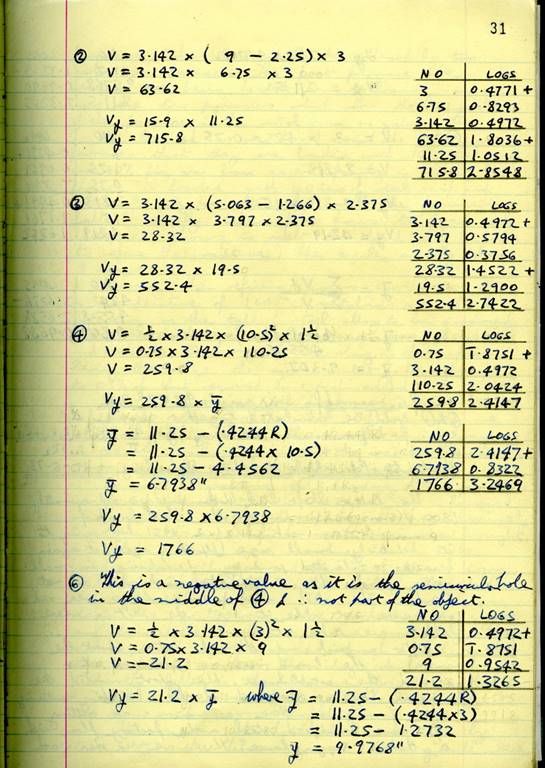 31
② V = 3·142 × ( 9 − 2·25) × 3
V = 3·142 × 6·75 × 3
V = 63·62
Vy = 15·9 × 11·25
Vy = 715·8
NO LOGS
3 0·4771 +
6·75 0·8293
3·142 0·4972
63·62 1·8036 +
11·25 1·0512
715·8 2·8548
③ V = 3·142 × (5·063 − 1·266) × 2·375
V = 3·142 × 3·797 × 2·375
V = 28·32
Vy = 28·32 × 19·5
Vy = 552·4
NO LOGS
3·142 0·4972 +
3·797 0·5794
2·375 0·3756
28·32 1·4522 +
19·5 1·2900
552·4 2·7422
④ V = ½ × 3·142 × (10·5)² × 1½
V = 0·75 × 3·142 × 110·25
V = 259·8
Vy = 259·8 × ȳ
ȳ = 11·25 − (·4244R)
= 11·25 − (·4244 × 10·5)
= 11·25 − 4·4562
ȳ = 6·7938"
Vy = 259·8 × 6·7938
Vy = 1766
NO LOGS
0·75 1̄·8751 +
3·142 0·4972
110·25 2·0424
259·8 2·4147
NO LOGS
259·8 2·4147 +
6·7938 0·8322
1766 3·2469
⑥ This is a negative value as it is the semicircular hole
in the middle of ④ & ∴ not part of the object.
V = ½ × 3·142 × (3)² × 1½
V = 0·75 × 3·142 × 9
V = −21·2
NO LOGS
3·142 0·4972 +
0·75 1̄·8751
9 0·9542
21·2 1·3265
Vy = 21·2 × ȳ where ȳ = 11·25 − (·4244R)
= 11·25 − (·4244×3)
= 11·25 − 1·2732
ȳ = 9·9768"